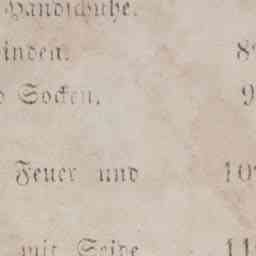 Handschuhe.
inden. 8
Socken, 9
Feuer und 10
mit Seide 11